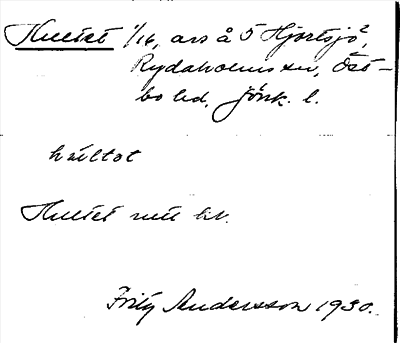 Hultet 1/16, avs å 5 Hjortsjö,
Rydaholms sn, Öst-
bo hd, Jönk. l.
hultət
Hultet mtl kr.
Fritz Andersson 1930.